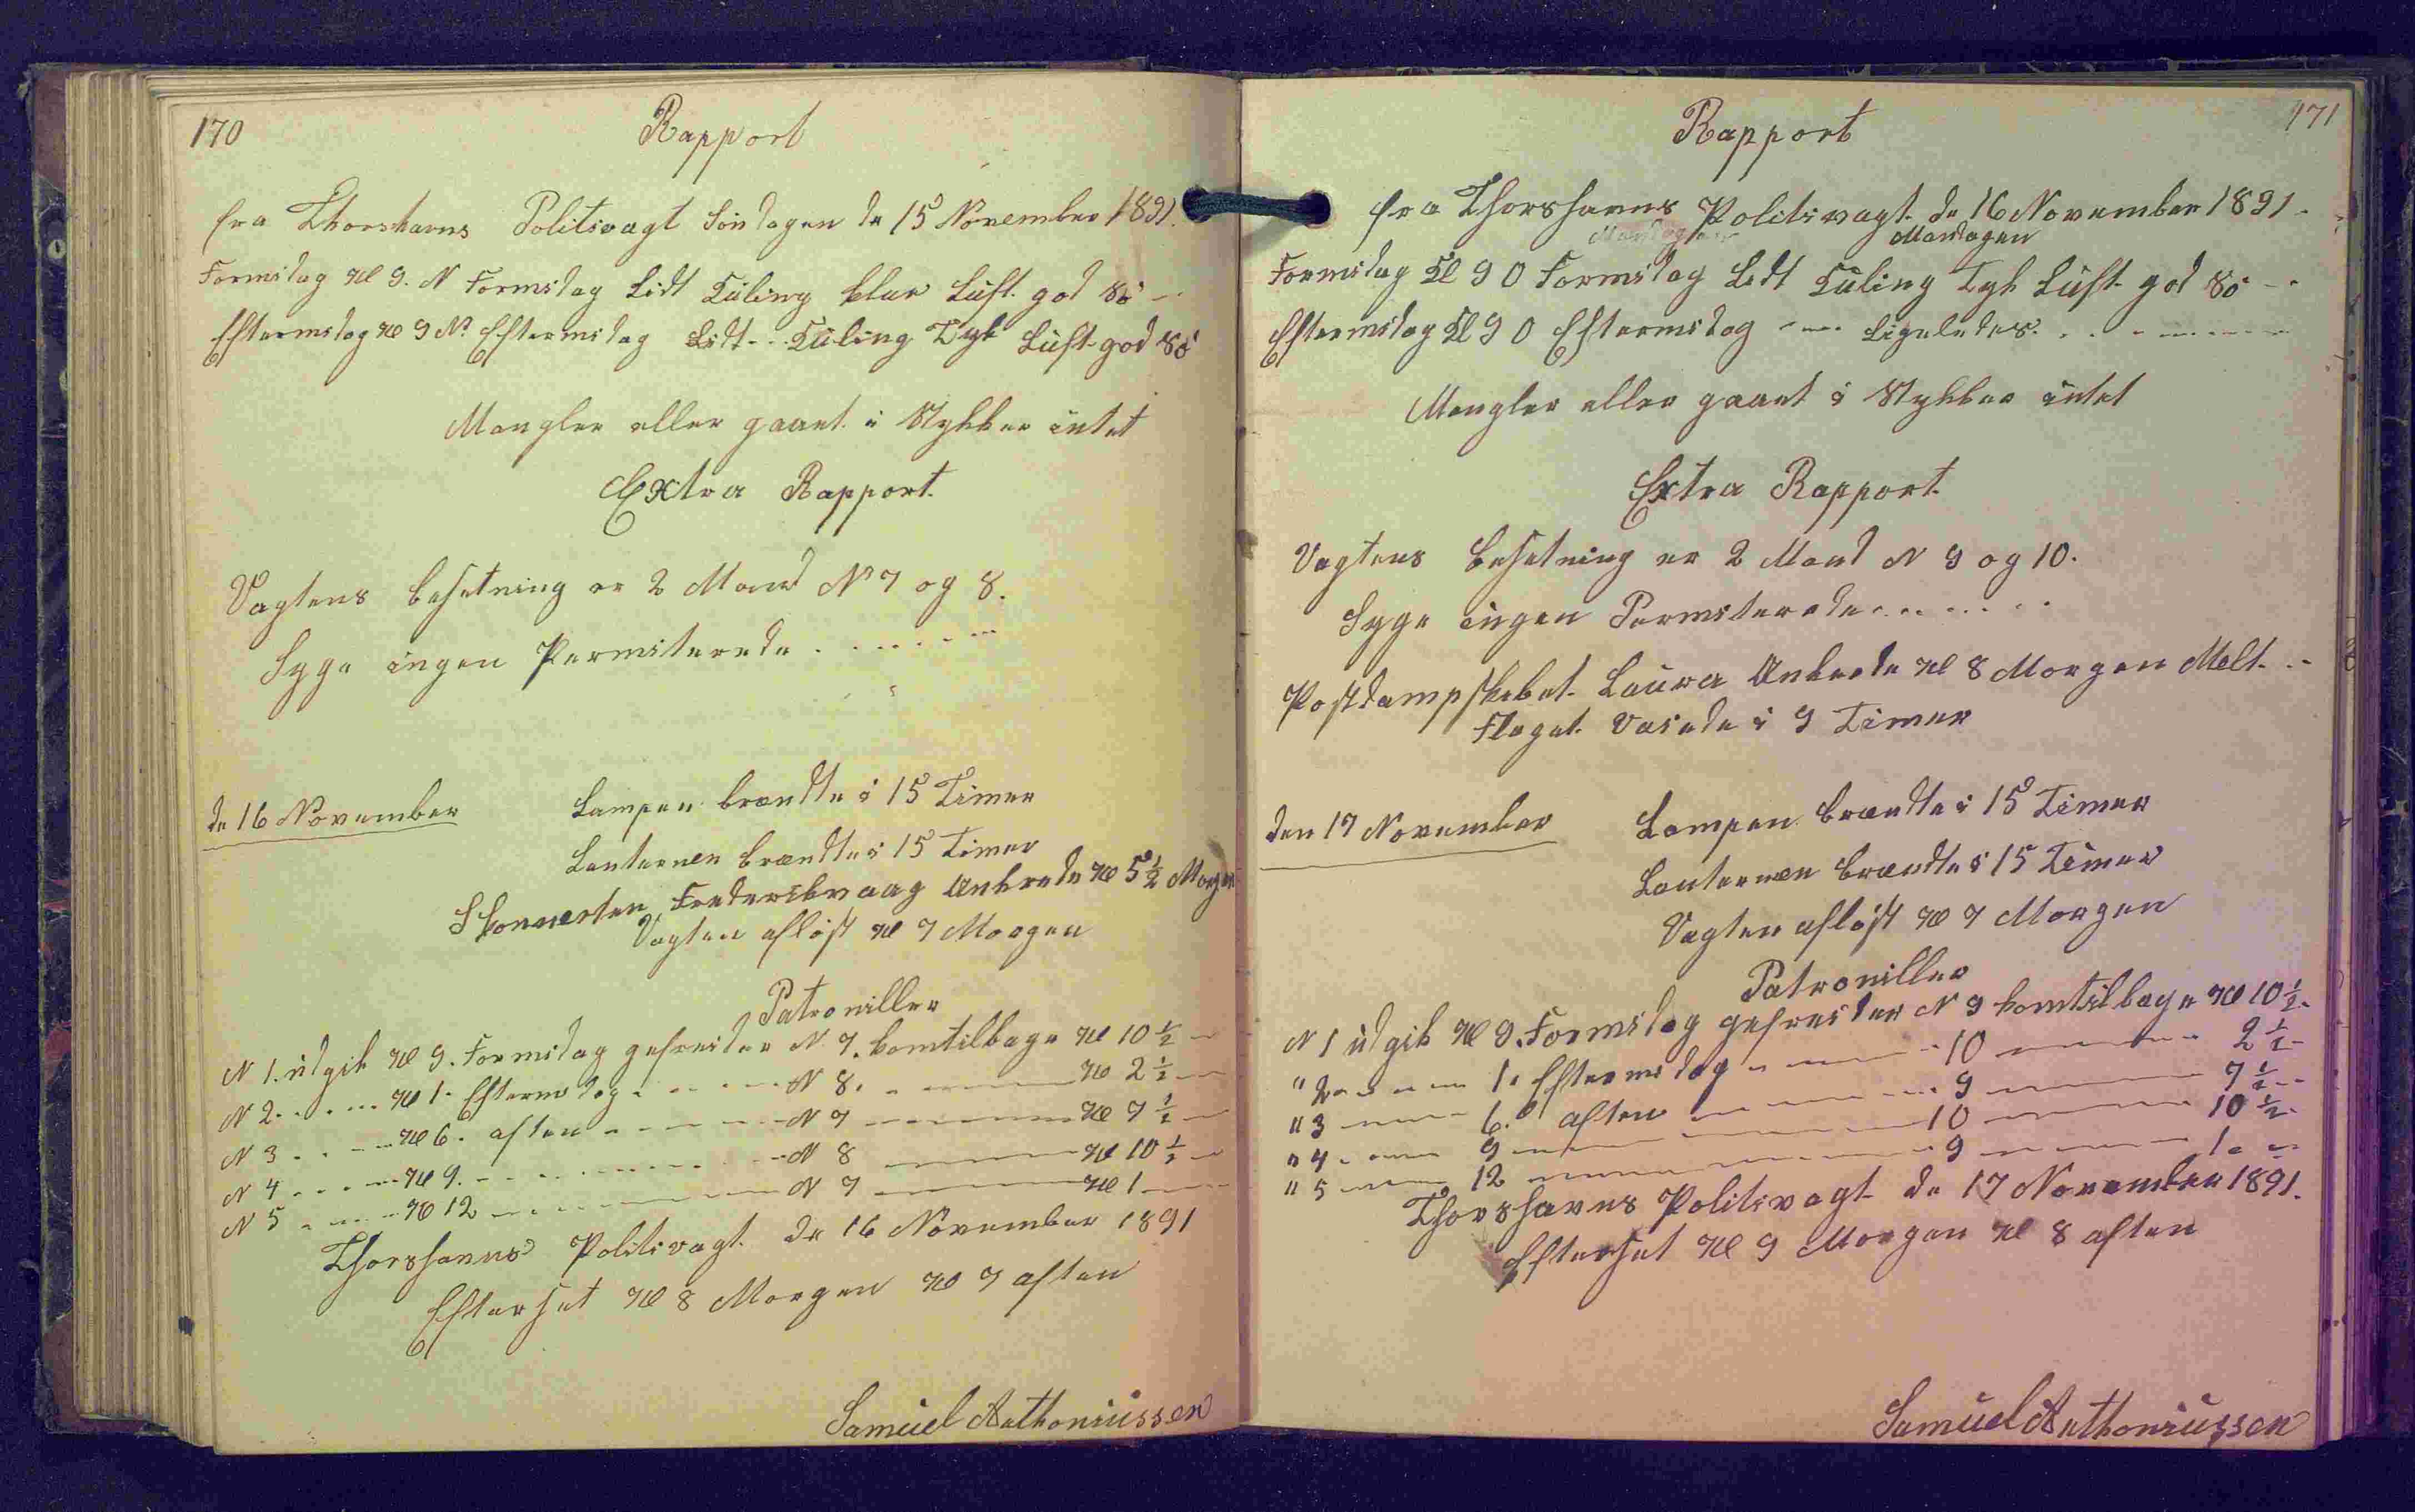 170
Rapport
fra Thorshavns Politivagt Søndagen de 15 November 1891.
Formidag Kl 9. N Formidag Lidt Kuling klar Luft god Sø
Eftermidag Kl 9 N. Eftermidag Lidt Kuling Tyk Luft god Sø
Mangler eller gaaet i Stykker intet
Extra Rapport.
Vagtens Besetning er 2 Mand N 7 og 8.
Syge ingen Permiterede
de 16 November
Lampen brændte i 15 Timer
Lanternen brændte i 15 Timer
Skonnerten Frederikvaag Ankrede Kl 5½ Morgen
Vagten afløst Kl 7 Morgen
Patrouiller
N 1. udgik Kl 9. Formidag gefreider N 7. komtilbage Kl 10½
N 2. Kl 1. Eftermidag N 8. Kl 2½
N 3 Kl 6. aften N 7 Kl 7½
N 4 Kl 9. N 8 Kl 10½
N 5 Kl 12 N 7 Kl 1
Thorshavns Politivagt de 16 November 1891
Efterset Kl 8 Morgen Kl 7 aften
Samuel Anthoniussen
171
Rapport
fra Thorshavns Politivagt de 16 November 1891.
Mandagen
Formidag Kl 9 O Formidag Lidt Kuling Tyk Luft god Sø
Eftermidag Kl 9 O Eftermidag Ligeledes.
Mangler eller gaaet i Stykker intet
Extra Rapport
Vagtens Besetning er 2 Mand N 9 og 10.
Syge ingen Permiterede
Postdampskibet Laura Ankrede Kl 8 Morgen Melt.
Flaget Vaiede i 9 Timer
den 17 November
Lampen brændte i 15 Timer
Lanternen brændte i 15 Timer
Vagten afløst Kl 7 Morgen
Patrouiller
N 1 udgik Kl 9. Formidag gefreider N 9 komtilbage Kl 10½
" 2 1. Eftermidag 10 2½
" 3 6. aften 9 7½
" 4 9 10 10½
" 5 12 9 1
Thorshavns Politivagt de 17 November 1891.
Efterset Kl 9 Morgen Kl 8 aften
Samuel Anthoniussen